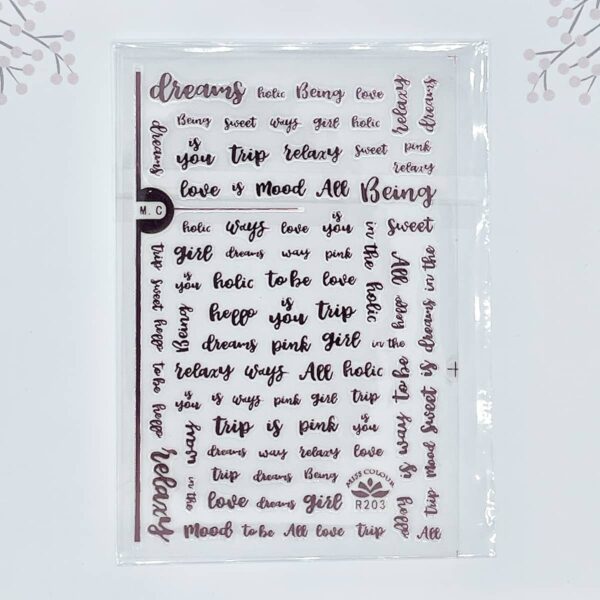 dreams holic Being love
Being sweet ways girl holic
is you trip relaxy sweet pink
relaxy
love is Mood All Being
M.C
holic ways love is you sweet
girl dreams way pink
is you holic to be love
hello is you trip
dreams pink girl in the
relaxy ways All holic
is you is ways pink girl trip
trip is pink is you
dreams way relaxy love
trip dreams Being
love dreams girl
Mood to be All love trip All
MISS COLOUR
R203
dreams
trip sweet hello to be hello
relaxy
Being
in the
relaxy
dreams
in the holic
All hello
is way to be
hello
trip Mood Sweet is dreams in the